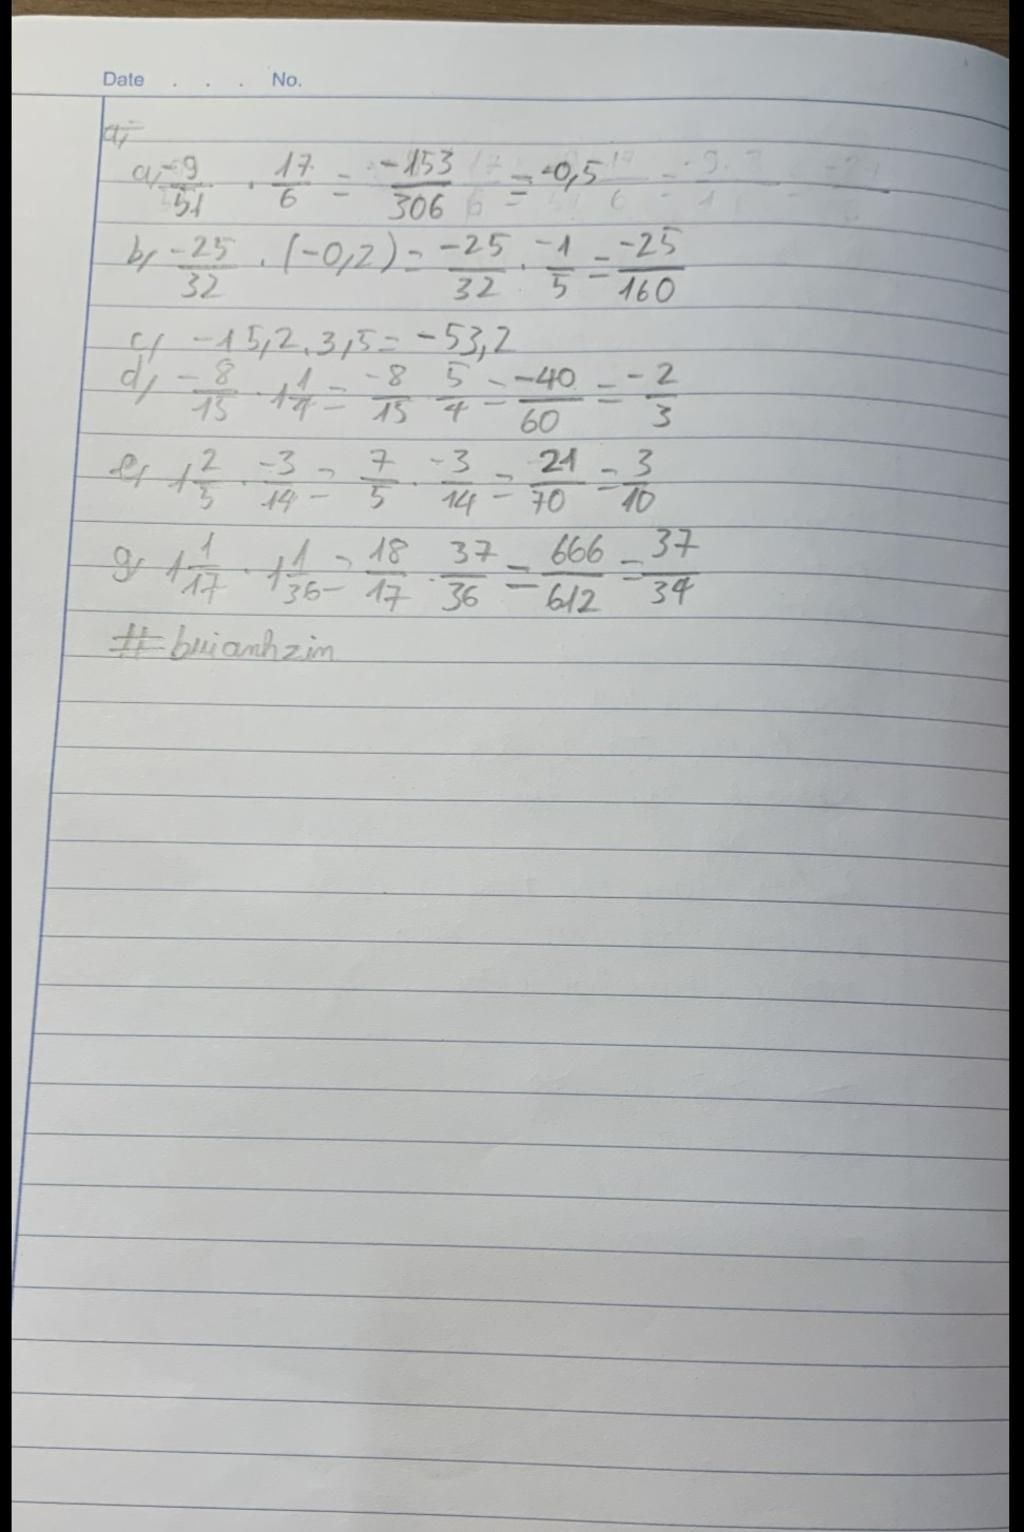 Date . . . No.
a,
a, -9/51 . 17/6 = -153/306 = -0,5
b, -25/32 . (-0,2) = -25/32 . -1/5 = -25/160
c, -15,2 . 3,5 = -53,2
d, -8/15 . 1 1/4 = -8/15 5/4 = -40/60 = -2/3
e, 1 2/5 . -3/14 = 7/5 . -3/14 = 21/70 = 3/10
g, 1 1/17 . 1 1/36 = 18/17 . 37/36 = 666/612 = 37/34
# buianhzim